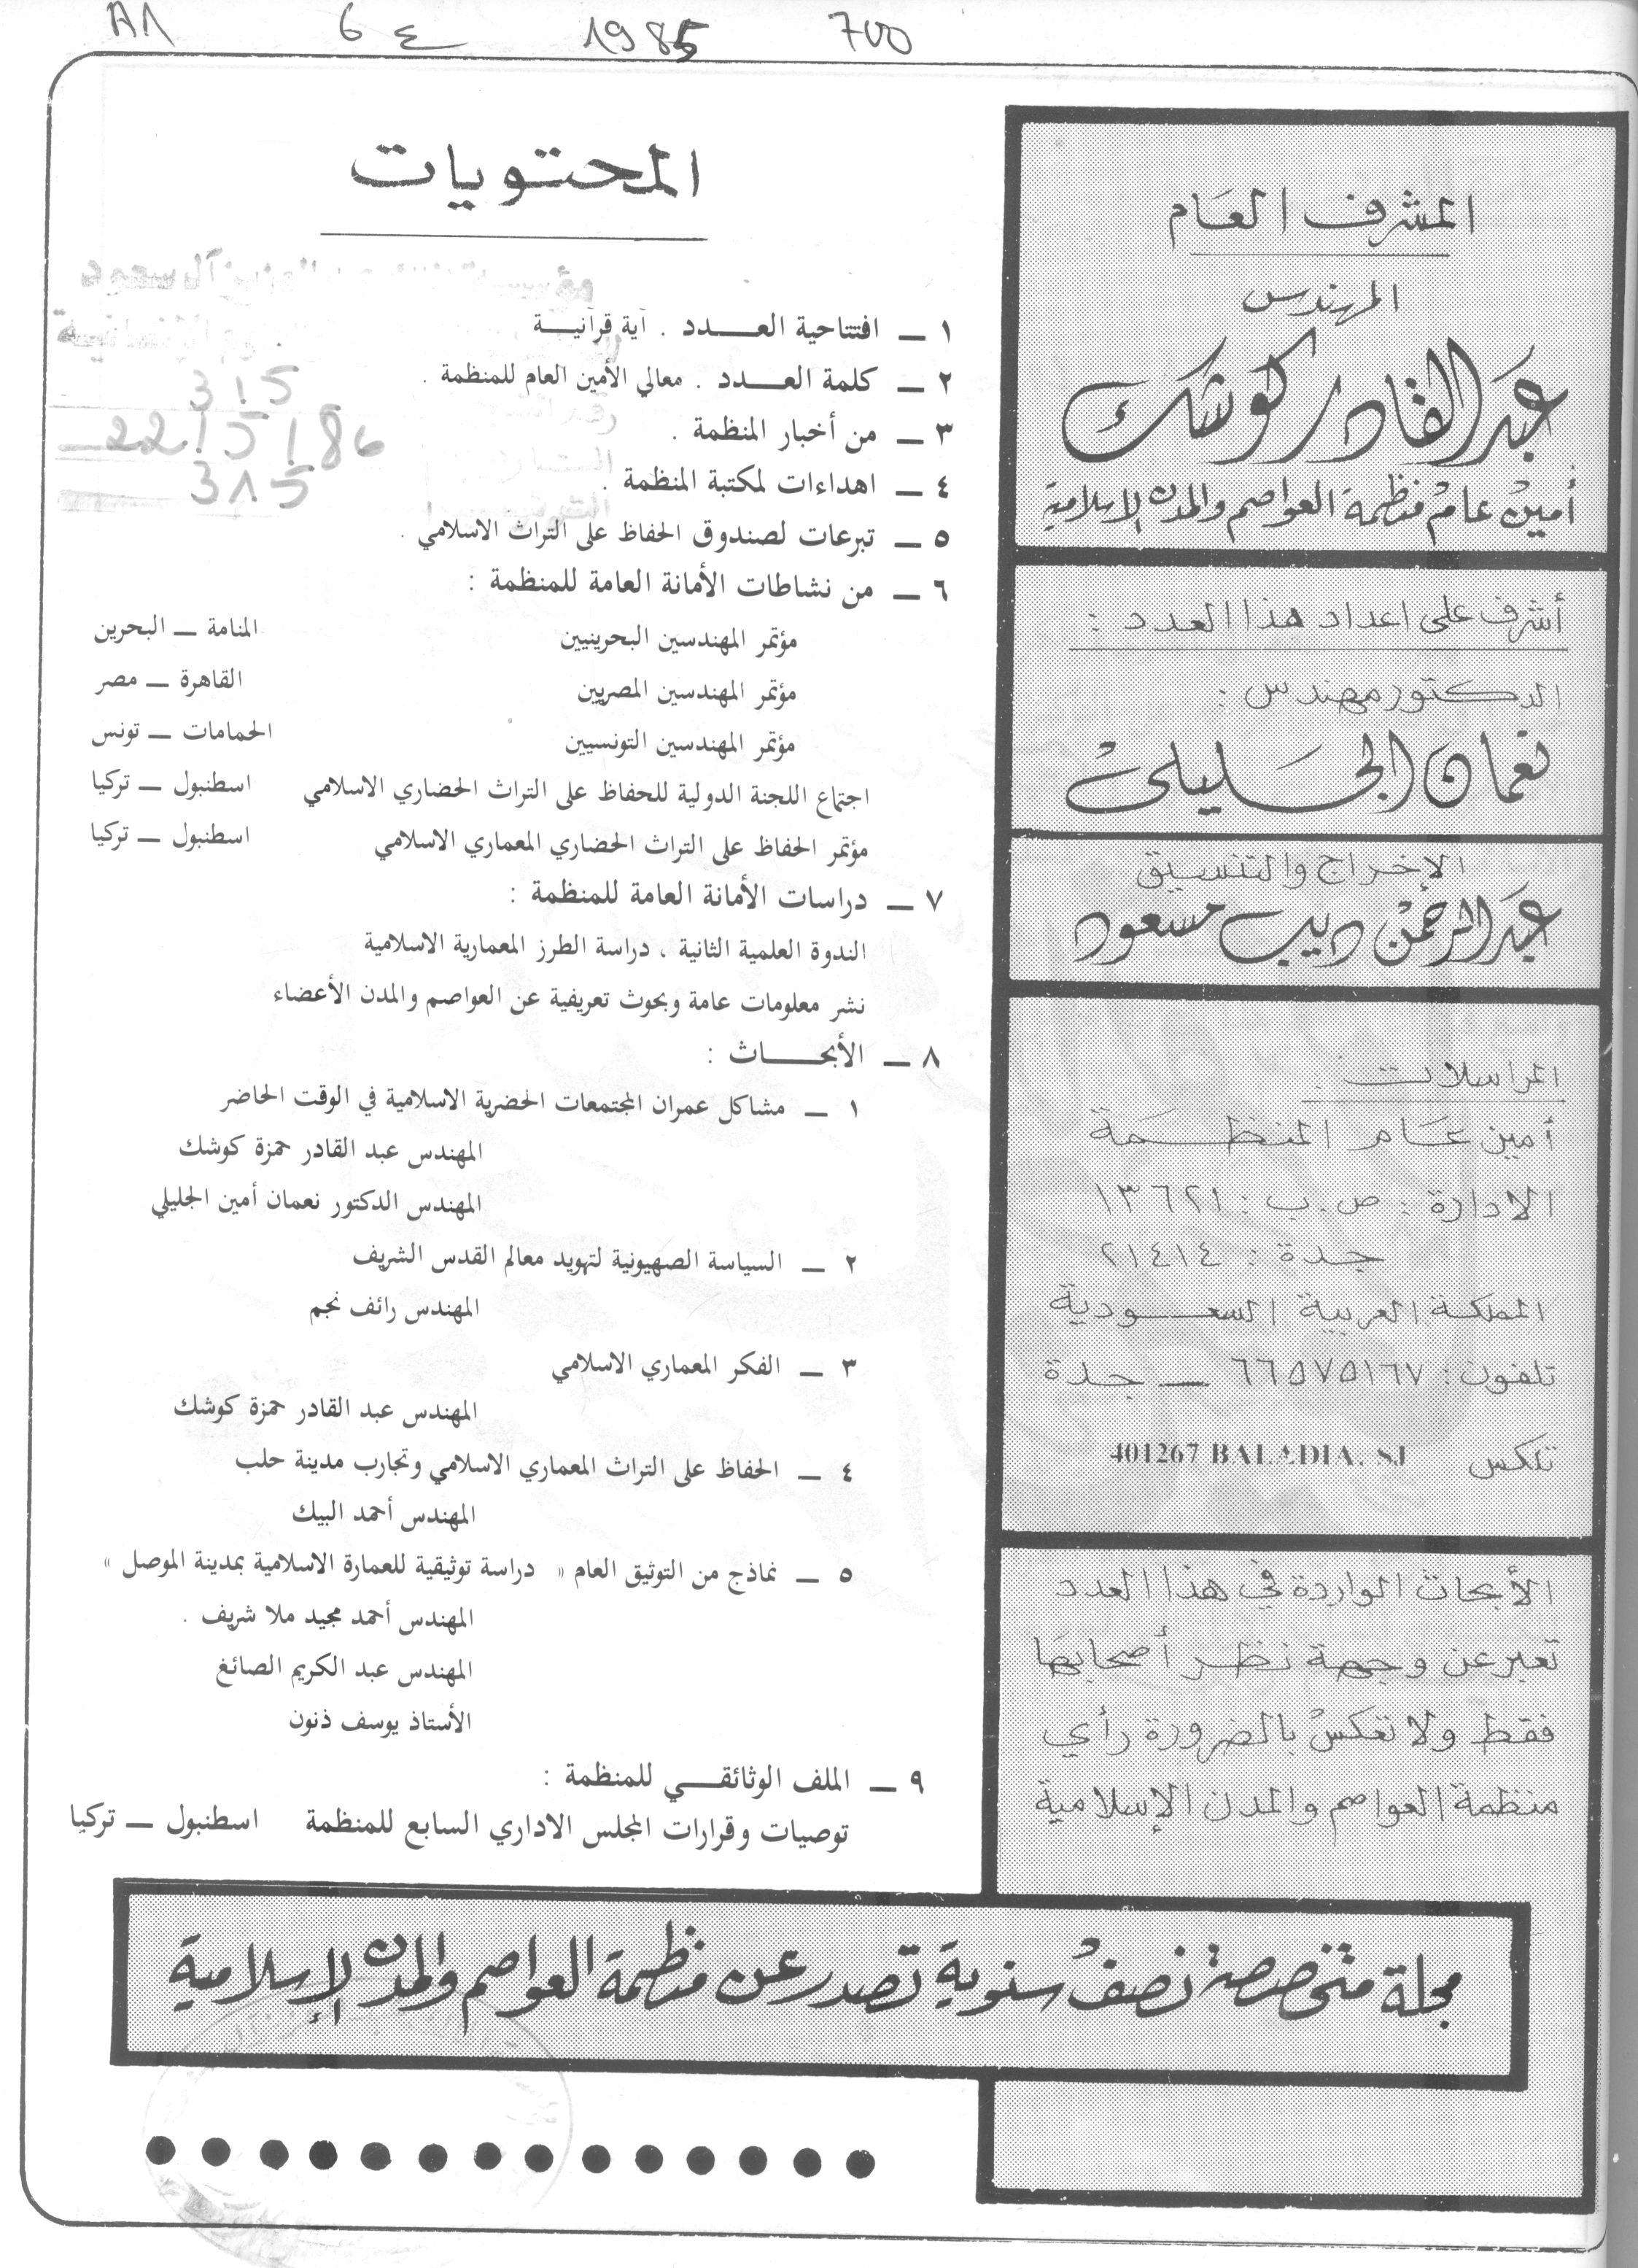 A1 6 ع 1985 700
المشرف العام
المهندس
عبد القادر كوشك
أمين عام منظمة العواصم والمدن الإسلامية
أشرف على اعداد هذا العدد :
الدكتور مهندس :
نعمان الجليلي
الإخراج والتنسيق
عبد الرحمن ديب مسعود
المراسلات :
أمين عام المنظمة
الادارة : ص . ب : ١٣٦٢١
جدة : ٢١٤١٤
المملكة العربية السعودية
تلفون : ٦٦٥٧٥١٦٧ — جدة
تلكس 401267 BALADIA. SJ
الأبحاث الواردة في هذا العدد
تعبر عن وجهة نظر أصحابها
فقط ولا تعكس بالضرورة رأي
منظمة العواصم والمدن الإسلامية
المحتويات
١ — افتتاحية العدد . آية قرآنية
٢ — كلمة العدد . معالي الأمين العام للمنظمة .
٣ — من أخبار المنظمة .
٤ — اهداءات لمكتبة المنظمة .
٥ — تبرعات لصندوق الحفاظ على التراث الاسلامي .
٦ — من نشاطات الأمانة العامة للمنظمة :
مؤتمر المهندسين البحرينيين المنامة — البحرين
مؤتمر المهندسين المصريين القاهرة — مصر
مؤتمر المهندسين التونسيين الحمامات — تونس
اجتماع اللجنة الدولية للحفاظ على التراث الحضاري الاسلامي اسطنبول — تركيا
مؤتمر الحفاظ على التراث الحضاري المعماري الاسلامي اسطنبول — تركيا
٧ — دراسات الأمانة العامة للمنظمة :
الندوة العلمية الثانية ، دراسة الطرز المعمارية الاسلامية
نشر معلومات عامة وبحوث تعريفية عن العواصم والمدن الأعضاء
٨ — الأبحاث :
١ — مشاكل عمران المجتمعات الحضرية الاسلامية في الوقت الحاضر
المهندس عبد القادر حمزة كوشك
المهندس الدكتور نعمان أمين الجليلي
٢ — السياسة الصهيونية لتهويد معالم القدس الشريف
المهندس رائف نجم
٣ — الفكر المعماري الاسلامي
المهندس عبد القادر حمزة كوشك
٤ — الحفاظ على التراث المعماري الاسلامي وتجارب مدينة حلب
المهندس أحمد البيك
٥ — نماذج من التوثيق العام « دراسة توثيقية للعمارة الاسلامية بمدينة الموصل »
المهندس أحمد مجيد ملا شريف .
المهندس عبد الكريم الصائغ
الأستاذ يوسف ذنون
٩ — الملف الوثائقي للمنظمة :
توصيات وقرارات المجلس الاداري السابع للمنظمة اسطنبول — تركيا
مجلة متخصصة نصف سنوية تصدر عن منظمة العواصم والمدن الإسلامية